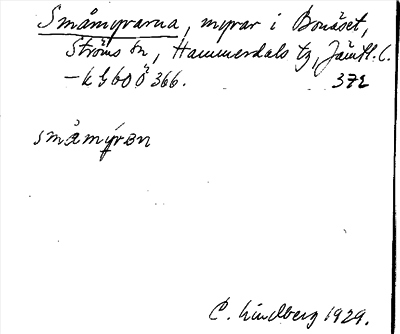 Småmyrarna, myrar i Bonäset,
Ströms sn, Hammerdals tg, Jämtl. l.
372
småmýran
C. Lindberg 1929.